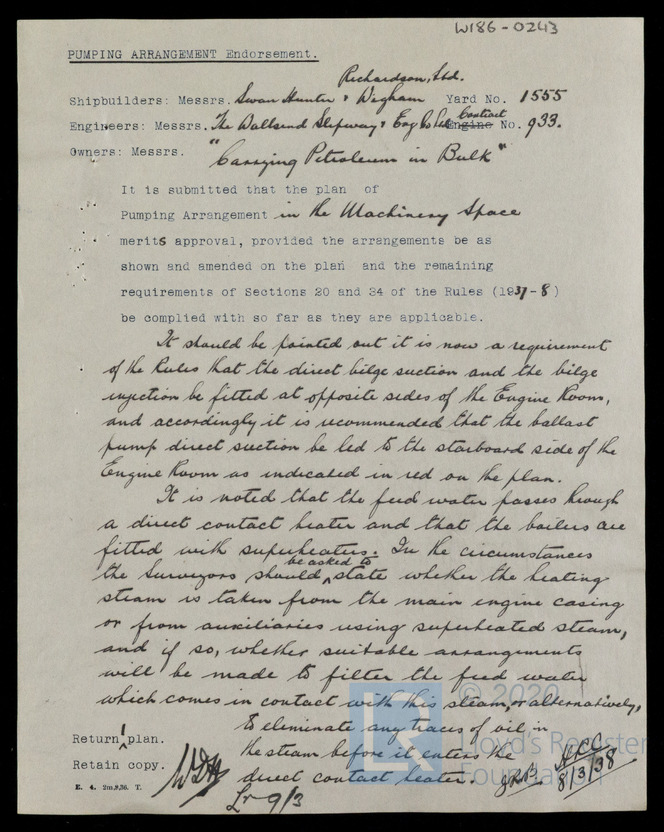 W186-0243
PUMPING ARRANGEMENT Endorsement.
Richardson, Ltd.
Shipbuilders: Messrs. Swan Hunter & Wigham Yard No. 1555
Contract
Engineers: Messrs. The Wallsend Slipway & Eng Co Ltd Engine No. 933.
Owners: Messrs.
"Carrying Petroleum in Bulk"
It is submitted that the plan of
Pumping Arrangement in the Machinery Space
merits approval, provided the arrangements be as
shown and amended on the plan and the remaining
requirements of Sections 20 and 34 of the Rules (1937-8)
be complied with so far as they are applicable.
It should be pointed out it is now a requirement
of the Rules that the direct bilge suction and the bilge
injection be fitted at opposite sides of the Engine Room,
and accordingly it is recommended that the ballast
pump direct suction be led to the starboard side of the
Engine Room as indicated in red on the plan.
It is noted that the feed water passes through
a direct contact heater and that the boilers are
fitted with superheaters. In the circumstances
be asked to
the Surveyors should state whether the heating
steam is taken from the main engine casing
or from auxiliaries using superheated steam,
and if so, whether suitable arrangements
will be made to filter the feed water
which comes in contact with this steam, or alternatively,
to eliminate any traces of oil in
the steam before it enters the
direct contact heater.
Return 1 plan.
Retain copy.
E. 4. 2m,9,36. T.
Lr 9/3
JRB
HCC
8/3/38
© 2020
Lloyd's Register
Foundation